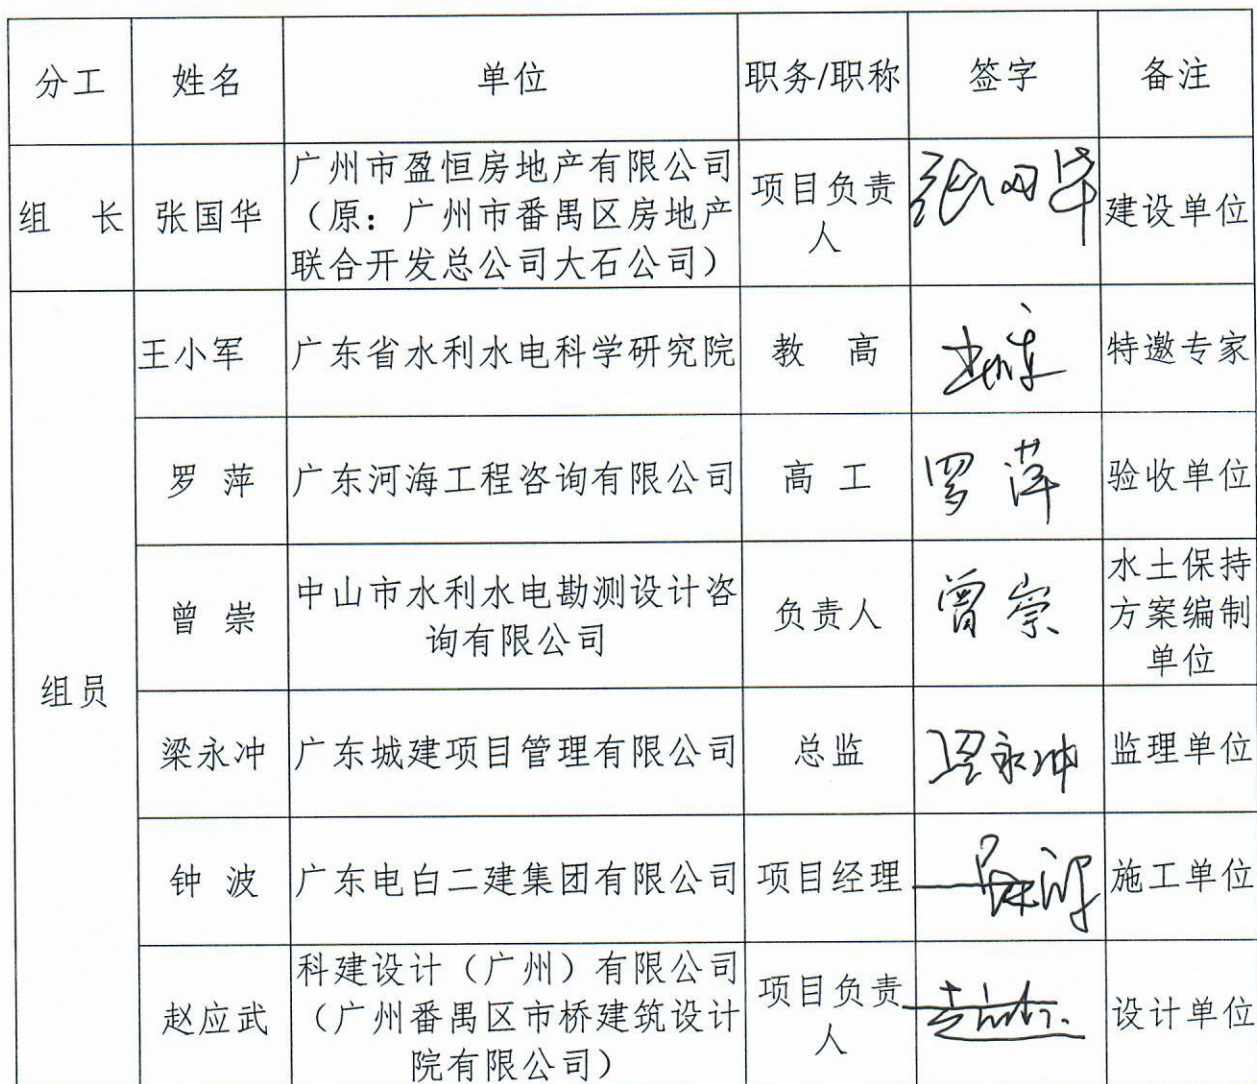 分工 姓名 单位 职务/职称 签字 备注
组 长 张国华 广州市盈恒房地产有限公司
（原：广州市番禺区房地产
联合开发总公司大石公司） 项目负责
人 张国华 建设单位
组员
王小军 广东省水利水电科学研究院 教 高 特邀专家
罗 萍 广东河海工程咨询有限公司 高 工 罗萍 验收单位
曾 崇 中山市水利水电勘测设计咨
询有限公司 负责人 曾崇 水土保持
方案编制
单位
梁永冲 广东城建项目管理有限公司 总监 梁永冲 监理单位
钟 波 广东电白二建集团有限公司 项目经理 施工单位
赵应武 科建设计（广州）有限公司
（广州番禺区市桥建筑设计
院有限公司） 项目负责
人 设计单位